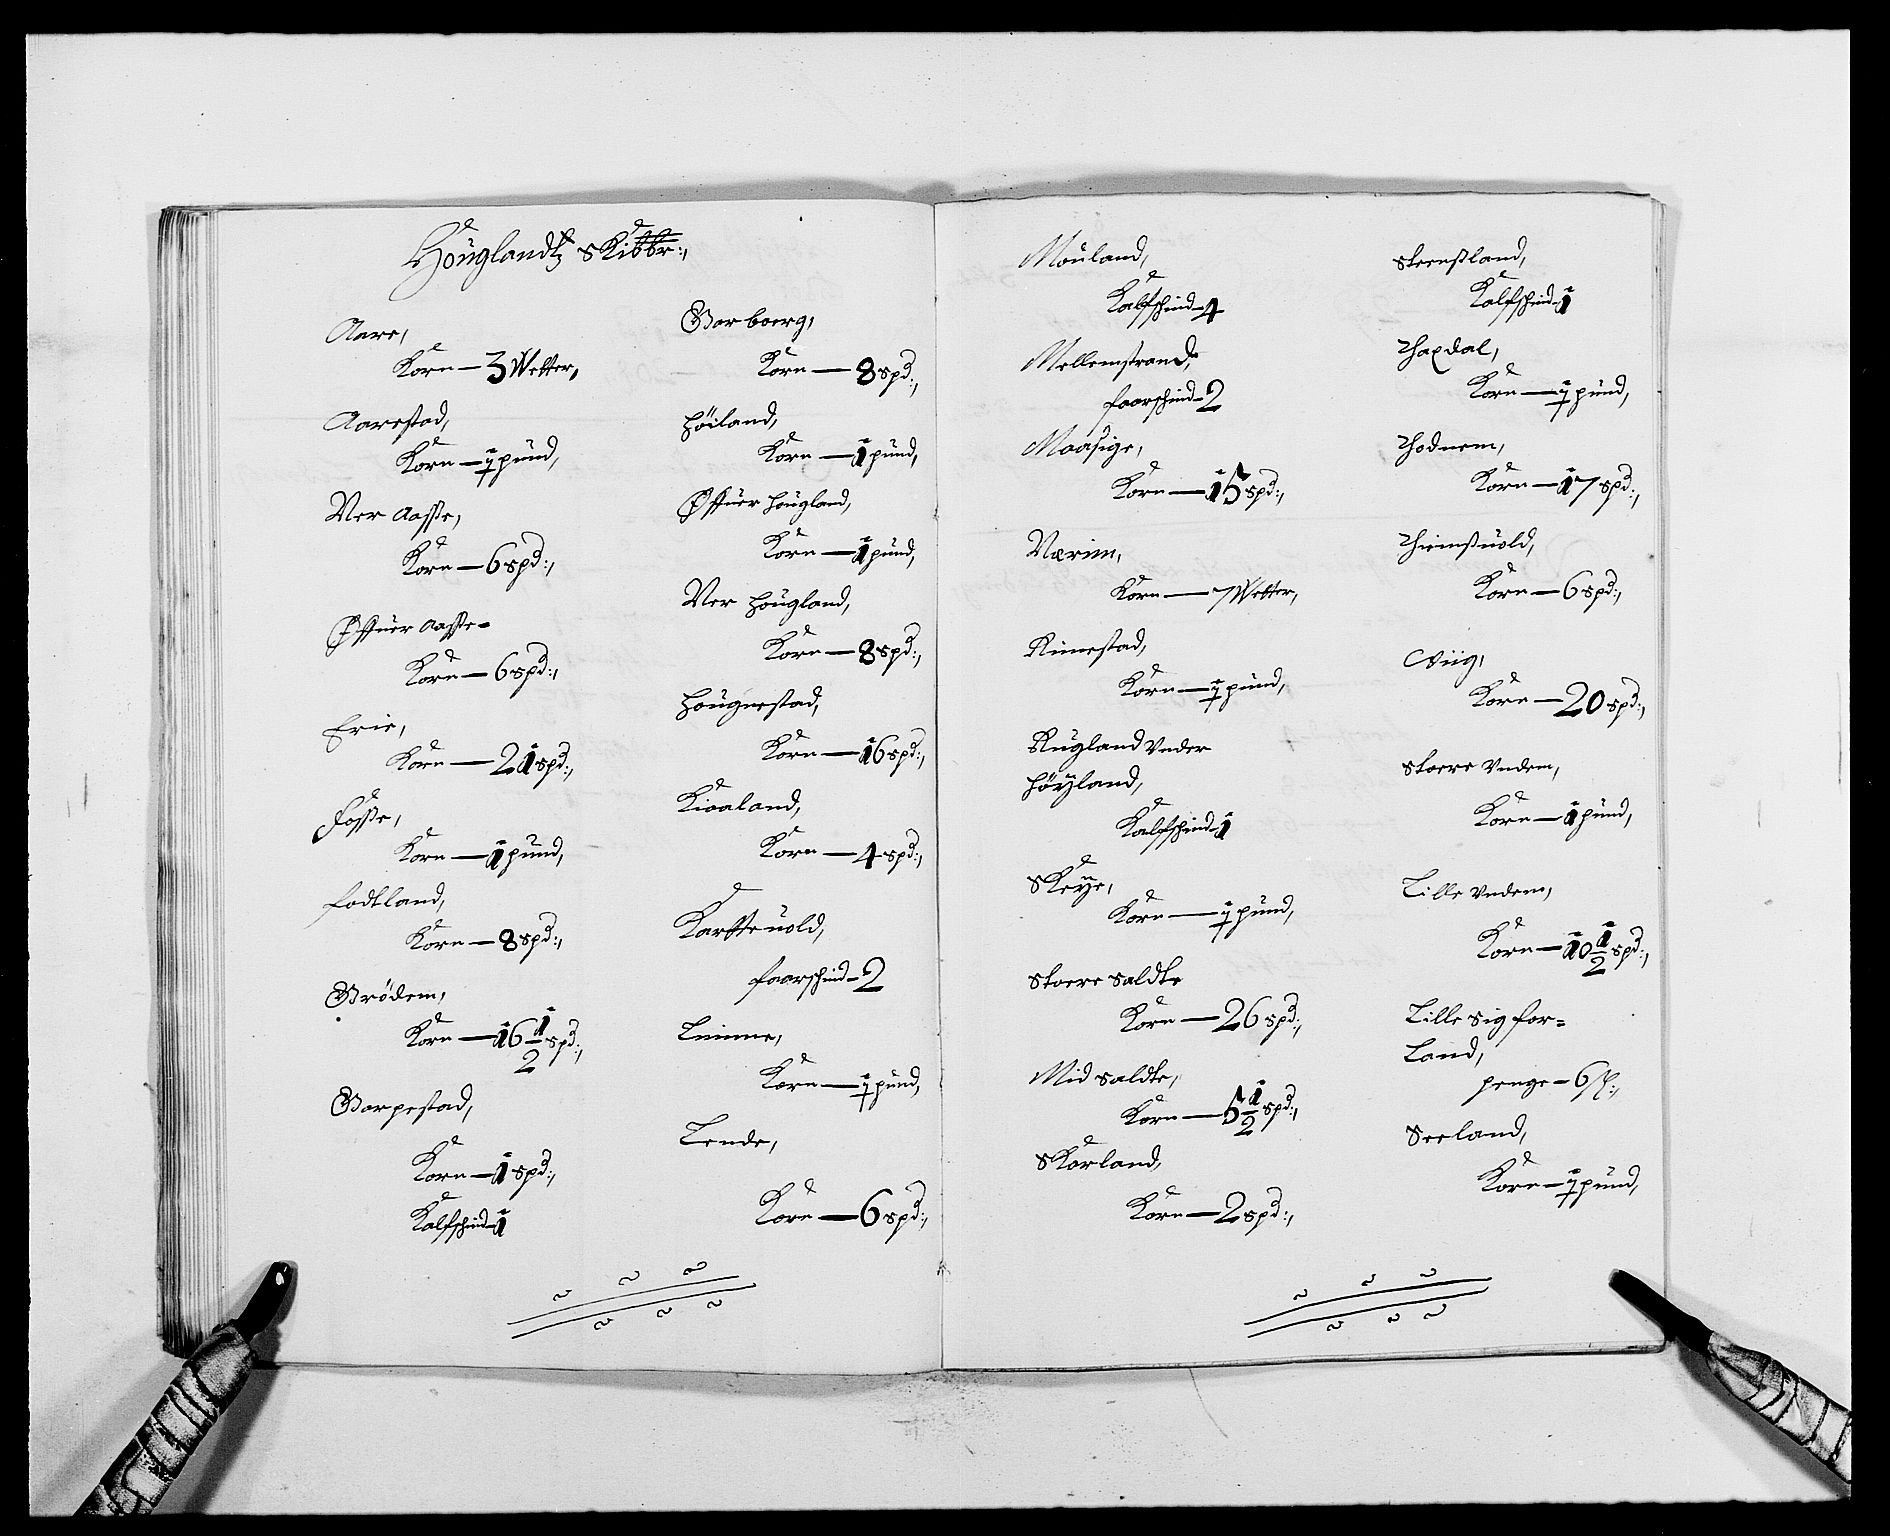 Höuglandtz Skibbr:,
Aare,
Korn — 3 Wetter,
Aarestad,
Korn — 1 pund,
Ner Aasse,
Korn — 6 spd:,
Øffuer Aasse
Korn — 6 spd:,
Erie,
Korn — 21 spd:,
Fosse,
Korn — 1 pund,
Fodtland,
Korn — 8 spd:,
Grödem,
Korn — 16 1/2 spd:,
Garpestad,
Korn — 1 spd:,
Kalfschind — 1
Garborg,
Korn — 8 spd:,
Höiland,
Korn — 1 pund,
Øffuer Höugland,
Korn — 1 pund,
Ner Höugland,
Korn — 8 spd:,
Höugnestad,
Korn — 16 spd:,
Kioaland,
Korn — 4 spd:,
Kartteuold,
faarschind — 2
Linime,
Korn — 1 pund,
Lende,
Korn — 6 spd:,
Mouland,
Kalfschind — 4
Mellemstrand,
faarschind — 2
Maasige,
Korn — 15 spd:,
Nærim,
Korn — 7 Wetter,
Rimestad,
Korn — 1 pund,
Rugland Vnder
Höÿland,
Kalfschind — 1
Skeÿe,
Korn — 1 pund,
Stoere Saldte
Korn — 26 spd:,
Mid Saldte,
Korn — 5 1/2 spd:,
Skorland,
Korn — 2 spd:,
Steensland,
Kalfschind — 1
Thaxdal,
Korn — 1 pund,
Thodnem,
Korn — 17 spd:,
Thiemsuold,
Korn — 6 spd:,
Wiig,
Korn — 20 spd:,
Stoere Vndem,
Korn — 1 pund,
Lille Vndem,
Korn — 10 1/2 spd:,
Lille Sigfar=
Land,
penge — 6 ß:,
Seeland,
Korn — 1 pund,